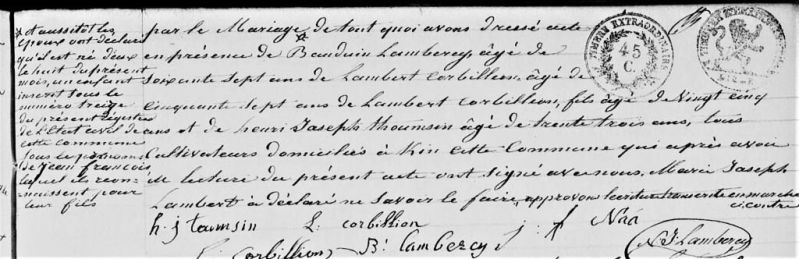 par le Mariage de tout quoi avons dressé acte
en présence de Bauduin Lambercy, âgé de
soixante sept ans de Lambert Corbillon, âgé de
cinquante sept ans de Lambert Corbillon, fils âgé de Vingt cinq
ans et de henri Joseph thoumsin âgé de trente trois ans, tous
Cultivateurs domiciliés à Kin cette Commune qui après avoir
lecture du présent acte ont signé avec nous, Marie Joseph
Lambert a déclaré ne savoir le faire, approvon lecriture transcrite en marche
ci contre
et aussitot les
époux ont déclaré
qu'il est né d'eux
le huit du présent
mois, un enfant
inscrit sous le
numéro treize
du présent registre
de L'Etat civil de
cette commune
sous le prénoms
de Jean françois
lequel ils recon-
naissent pour
leur fils
TIMBRE EXTRAORDINAIRE
45
C.
h. j toumsin L. corbillion
corbillion B. lambercy
N J Lambercy